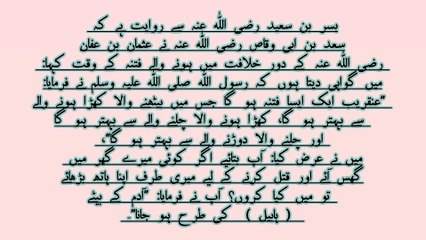 بسر بن سعید رضی اللہ عنہ سے روایت ہے کہ
سعد بن ابی وقاص رضی اللہ عنہ نے عثمان بن عفان
رضی اللہ عنہ کے دور خلافت میں ہونے والے فتنہ کے وقت کہا:
میں گواہی دیتا ہوں کہ رسول اللہ صلی اللہ علیہ وسلم نے فرمایا:
”عنقریب ایک ایسا فتنہ ہو گا جس میں بیٹھنے والا کھڑا ہونے والے
سے بہتر ہو گا، کھڑا ہونے والا چلنے والے سے بہتر ہو گا
اور چلنے والا دوڑنے والے سے بہتر ہو گا“،
میں نے عرض کیا: آپ بتائیے اگر کوئی میرے گھر میں
گھس آئے اور قتل کرنے کے لیے میری طرف اپنا ہاتھ بڑھائے
تو میں کیا کروں؟ آپ نے فرمایا: ”آدم کے بیٹے
( ہابیل ) کی طرح ہو جانا“۔